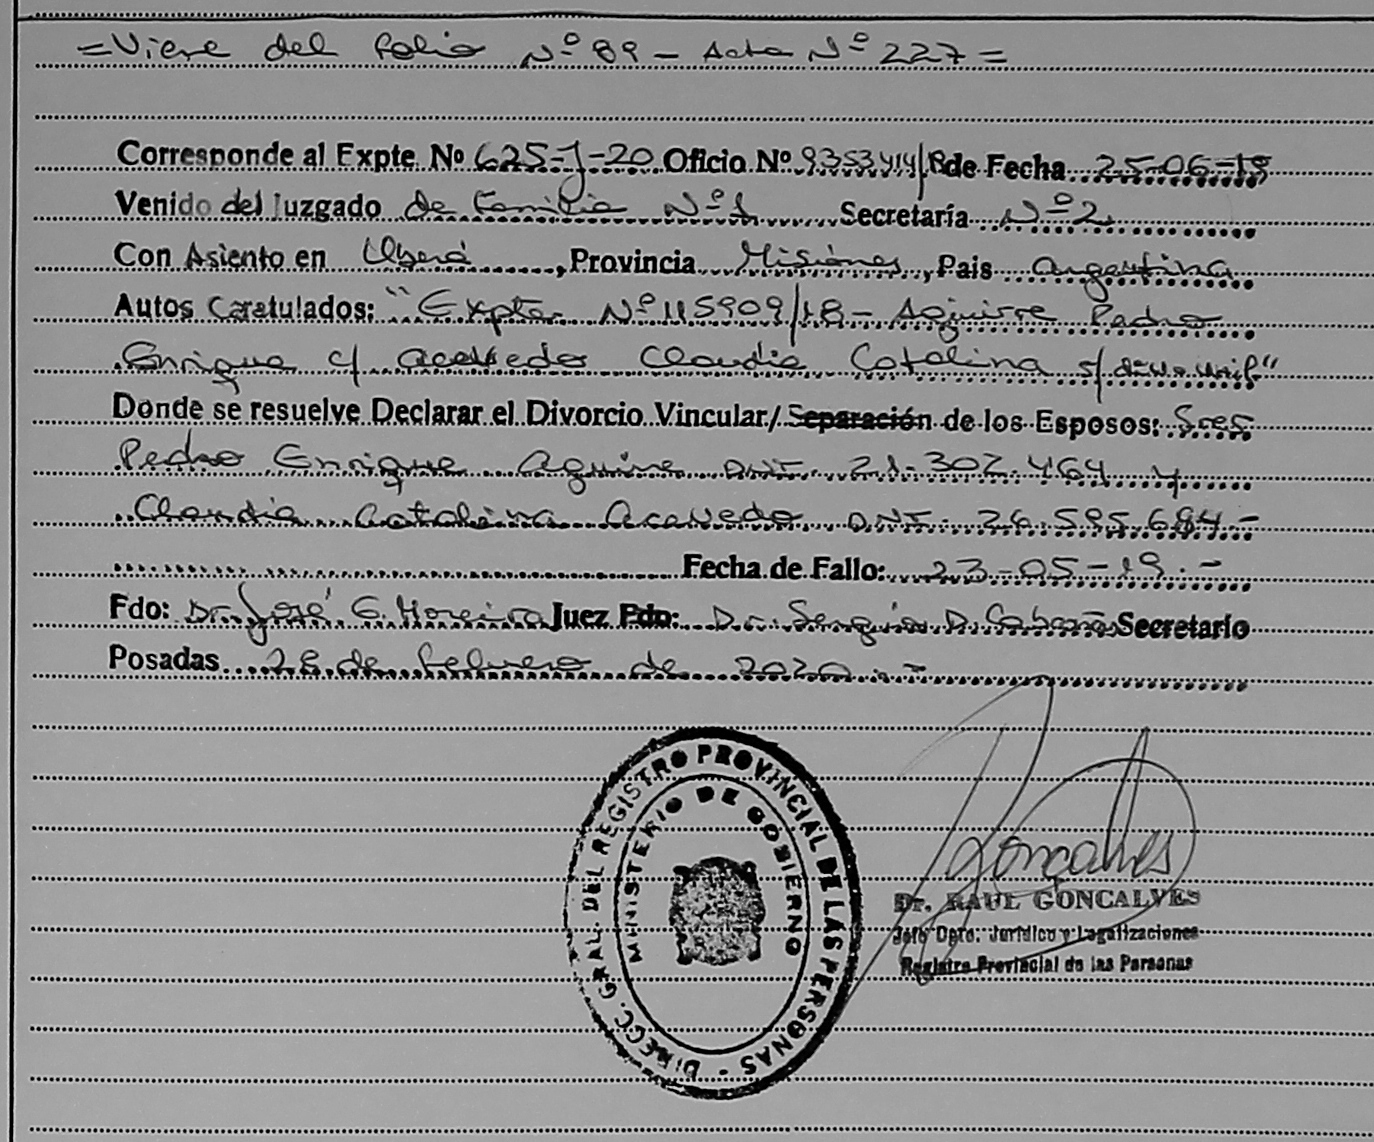 =Viene del folio Nº 89 - Acta Nº 227=
Corresponde al Expte Nº 625-J-20 Oficio Nº 9353414/18 de Fecha 25-06-19
Venido del Juzgado de Familia Nº1 Secretaría Nº2
Con Asiento en Oberá, Provincia Misiones, Pais Argentina
Autos Caratulados: "Expte. Nº 115909/18 - Aguirre Pedro
Enrique c/ Acevedo Claudia Catalina s/ div. unif"
Donde se resuelve Declarar el Divorcio Vincular/Separación de los Esposos: Sres
Pedro Enrique Aguirre DNI. 21.302.464 y
Claudia Catalina Acevedo DNI. 26.595.684-
Fecha de Fallo: 23-05-19.-
Fdo: Dr. José G. Moreira Juez Fdo: Dr. Sergio D. Cabaña Secretario
Posadas 28 de febrero de 2020.-
DIRECC. GRAL. DEL REGISTRO PROVINCIAL DE LAS PERSONAS -
MINISTERIO DE GOBIERNO
Goncalves
Dr. RAUL GONCALVES
Jefe Dpto. Jurídico y Legalizaciones
Registro Provincial de las Personas